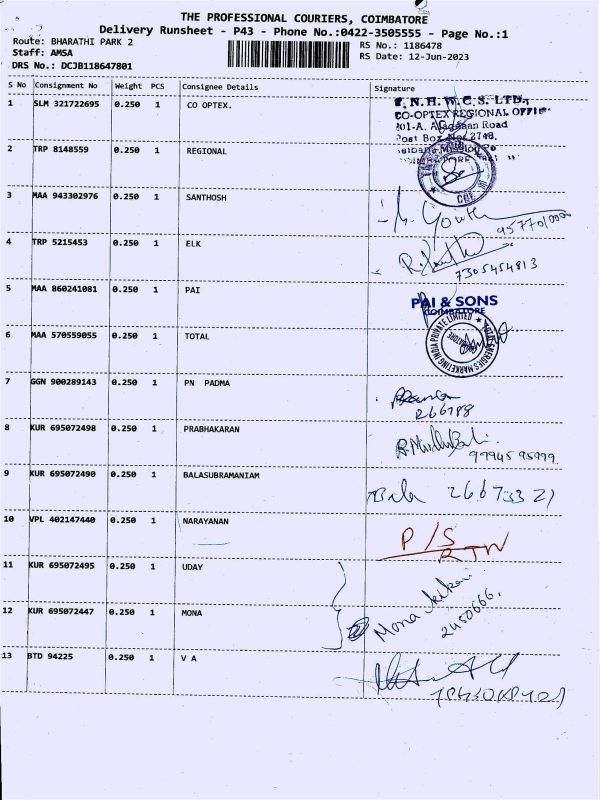 THE PROFESSIONAL COURIERS, COIMBATORE
Delivery Runsheet - P43 - Phone No.:0422-3505555 - Page No.:1
Route: BHARATHI PARK 2 RS No.: 1186478
Staff: AMSA RS Date: 12-Jun-2023
DRS No.: DCJB118647801
S No Consignment No Weight PCS Consignee Details Signature
1 SLM 321722695 0.250 1 CO OPTEX.
T.N.H.W.C.S. LTD.,
CO-OPTEX REGIONAL OFFIC
Road
Post Box No. 2748,
2 TRP 8148559 0.250 1 REGIONAL
3 MAA 943302976 0.250 1 SANTHOSH
4 TRP 5215453 0.250 1 ELK
7305454813
5 MAA 860241081 0.250 1 PAI
PAI & SONS
COIMBATORE
6 MAA 570559055 0.250 1 TOTAL
TOTAL ENERGIES MARKETING INDIA PRIVATE LIMITED
7 GGN 900289143 0.250 1 PN PADMA
8 KUR 695072498 0.250 1 PRABHAKARAN
9 KUR 695072490 0.250 1 BALASUBRAMANIAM
Bala 266733 21
10 VPL 402147440 0.250 1 NARAYANAN
P/S
RTN
11 KUR 695072495 0.250 1 UDAY
12 KUR 695072447 0.250 1 MONA
Mona
2450666.
13 BTD 94225 0.250 1 V A